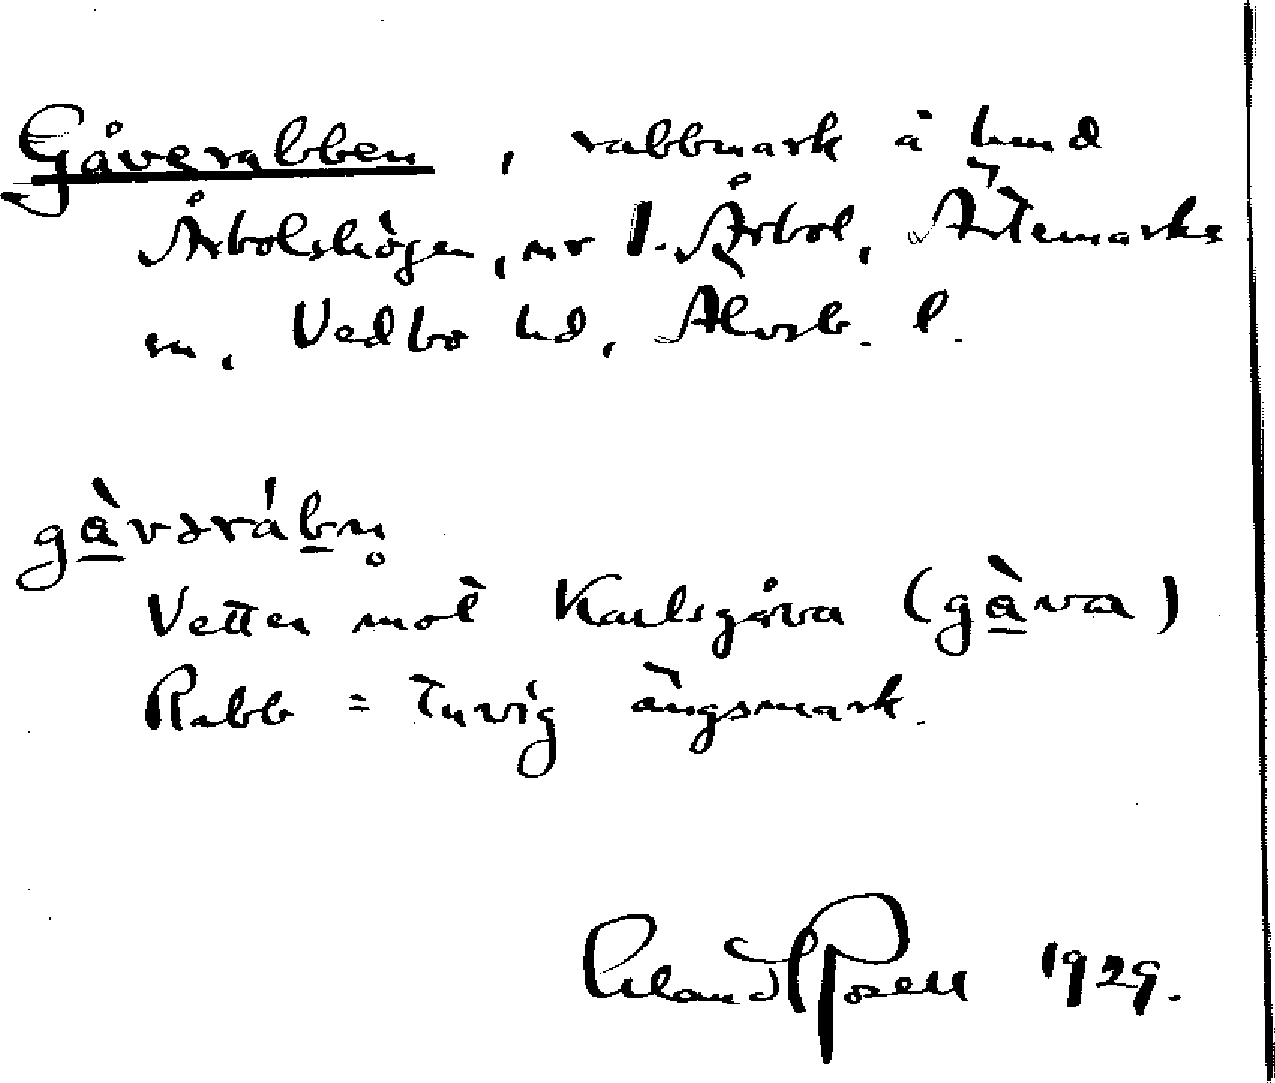 Gåverabben, rabbmark å hmd
Årbolshögen, nr 1. Årbol, Ärtemarks
sn, Vedbo hd, Älvsb. l.
gàvərábn̥
Vetter mot Karlsgåva (gàva)
Rabb = tuvig ängsmark.
Erland Rosell 1929.